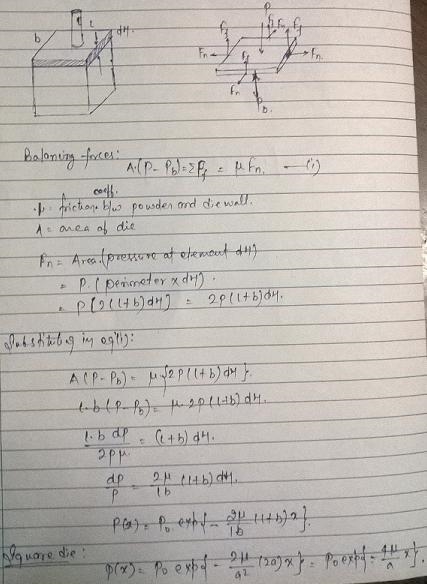 b l dH.
P
Ff Fn Ff
Ff
Fn Fn.
Ff
Fn
Pb.
Balancing forces:
A.(P - Pb) = ΣFf = μFn. —(1)
coeff.
μ = friction b/w powder and die wall.
A = area of die
Fn = Area.(pressure at element dH)
= P. (perimeter x dH).
= P[2(l+b)dH] = 2P(l+b)dH.
Substituting in eqⁿ(1):
A(P - Pb) = μ{2P(l+b)dH}.
l.b (P - Pb) = μ. 2P(l+b) dH.
l.b dP / 2Pμ = (l+b) dH.
dP / P = 2μ / lb (l+b) dH.
P(x) = P₀ exp{- 2μ / lb (l+b)x}.
Square die:
P(x) = P₀ exp{- 2μ / a² (2a)x} = P₀ exp{- 4μ / a x}.